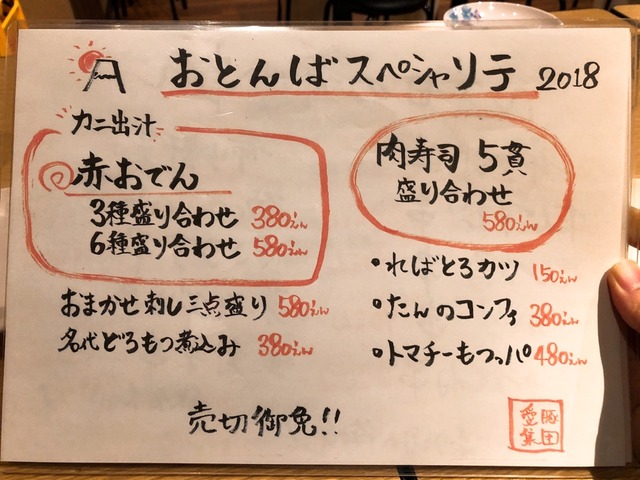 おとんばスペシャリテ 2018
カニ出汁
赤おでん
3種盛り合わせ 380えん
6種盛り合わせ 580えん
おまかせ刺し三点盛り 580えん
名代どろもつ煮込み 380えん
肉寿司 5貫
盛り合わせ
580えん
・ればとろカツ 150えん
・たんのコンフィ 380えん
・トマチーもつっパ 480えん
売切御免!!